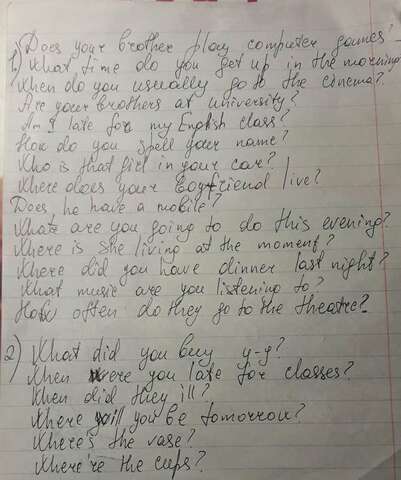 1) Does your brother play computer games?
What time do you get up in the morning
When do you usually go to the cinema?
Are your brothers at university?
Am I late for my English class?
How do you spell your name?
Who is that girl in your car?
Where does your boyfriend live?
Does he have a mobile?
What are you going to do this evening?
Where is she living at the moment?
Where did you have dinner last night?
What music are you listening to?
How often do they go to the theatre?
2) What did you buy y-y?
When were you late for classes?
When did they ill?
Where will you be tomorrow?
Where's the vase?
Where're the cups?